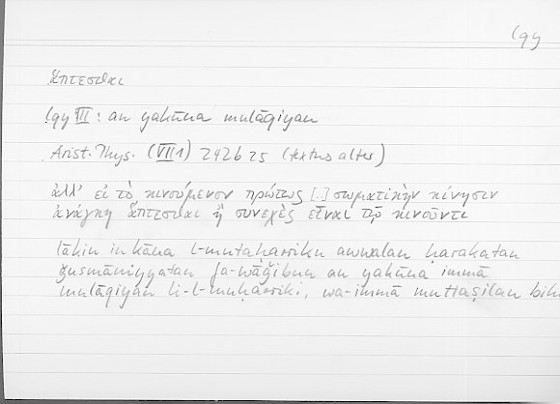 lqy
ἅπτεσθαι
lqy III : an yakūna mulāqiyan
Arist. Phys. (VII 1) 242b25 (textus alter)
ἀλλ' εἰ τὸ κινούμενον πρώτως [..] σωματικὴν κίνησιν
ἀνάγκη ἅπτεσθαι ἢ συνεχὲς εἶναι τῷ κινοῦντι
lākin in kāna l-mutaḥarriku awwalan ḥarakatan
ǧusmāniyyatan fa-wāǧibun an yakūna immā
mulāqiyan li-l-muḥarriki, wa-immā muttaṣilan bihi